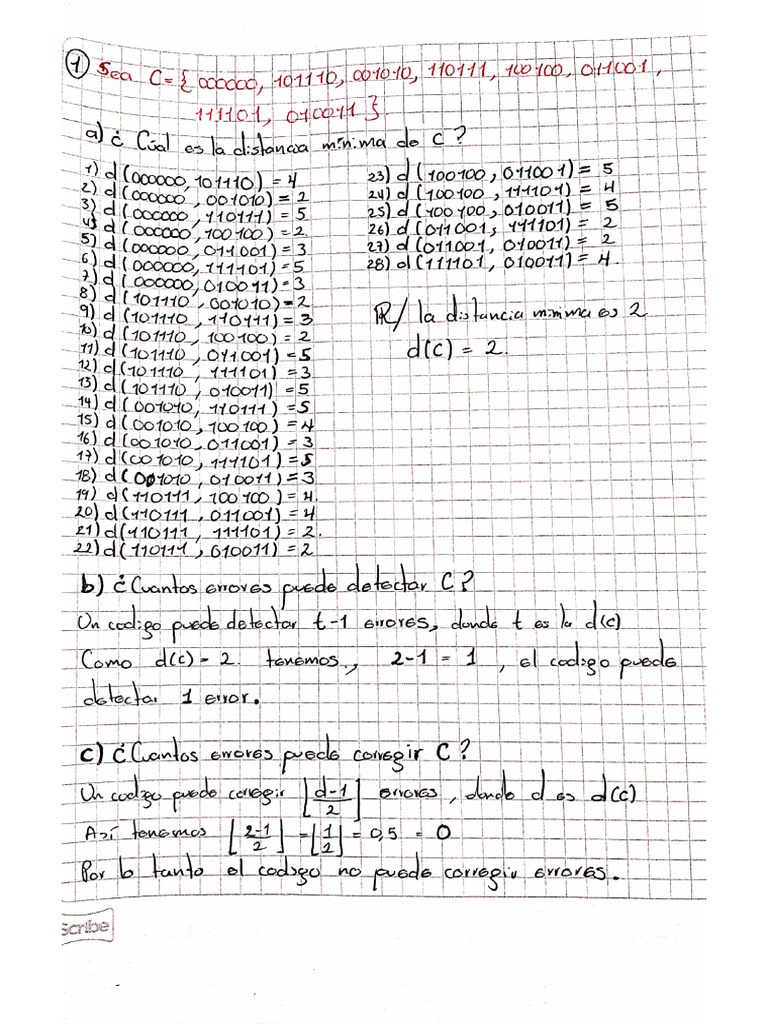 1 Sea C={000000, 101110, 001010, 110111, 100100, 011001,
111101, 010011}.
a) ¿Cúal es la distancia mínima de C?
1) d(000000,101110)=4
2) d(000000,001010)=2
3) d(000000,110111)=5
4) d(000000,100100)=2
5) d(000000,011001)=3
6) d(000000,111101)=5
7) d(000000,010011)=3
8) d(101110,001010)=2
9) d(101110,110111)=3
10) d(101110,100100)=2
11) d(101110,011001)=5
12) d(101110,111101)=3
13) d(101110,010011)=5
14) d(001010,110111)=5
15) d(001010,100100)=4
16) d(001010,011001)=3
17) d(001010,111101)=5
18) d(001010,010011)=3
19) d(110111,100100)=4.
20) d(110111,011001)=4
21) d(110111,111101)=2.
22) d(110111,010011)=2
23) d(100100,011001)=5
24) d(100100,111101)=4
25) d(100100,010011)=5
26) d(011001,111101)=2
27) d(011001,010011)=2
28) d(111101,010011)=4.
R/ la distancia minima es 2
d(C)=2.
b) ¿Cuantos errores puede detectar C?
Un codigo puede detectar t-1 errores, donde t es la d(C)
Como d(C)=2. tenemos, 2-1=1, el codigo puede
detectar 1 error.
c) ¿Cuantos errores puede corregir C?
Un codigo puede corregir ⌊d-1/2⌋ errores, donde d es d(C)
Así tenemos ⌊2-1/2⌋=⌊1/2⌋=0,5=0
Por lo tanto el codigo no puede corregir errores.
Scribe